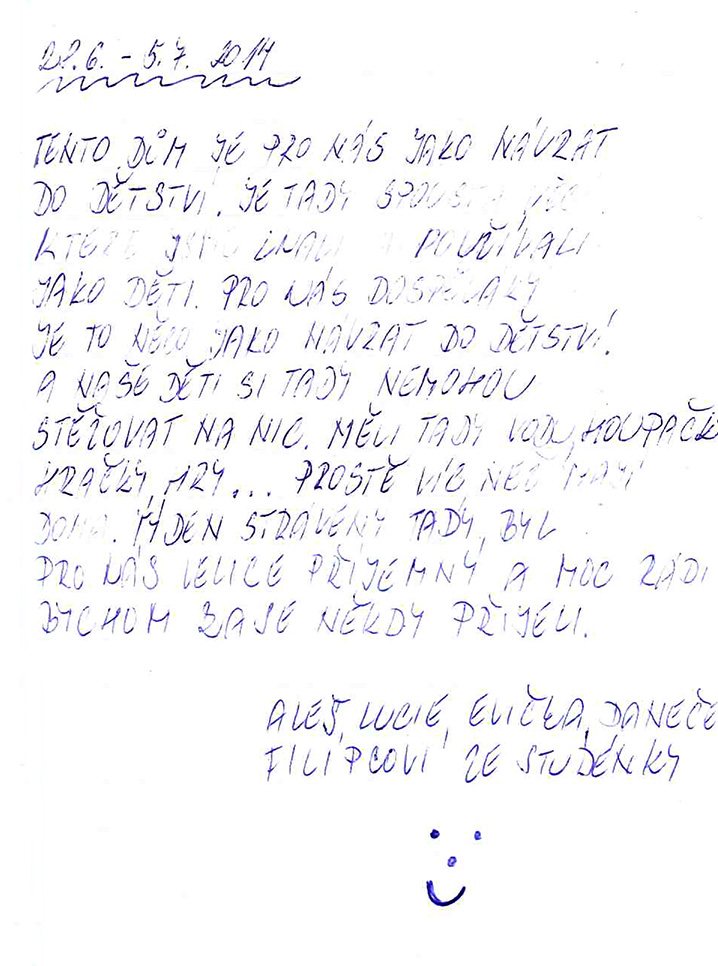 28.6. - 5.7. 2014
TENTO DŮM JE PRO NÁS JAKO NÁVRAT
DO DĚTSTVÍ. JE TADY SPOUSTA VĚCÍ,
KTERÉ JSME ZNALI A POUŽÍVALI
JAKO DĚTI. PRO NÁS DOSPĚLÁKY
JE TO NĚCO JAKO NÁVRAT DO DĚTSTVÍ.
A NAŠE DĚTI SI TADY NEMOHOU
STĚŽOVAT NA NIC. MĚLI TADY VODU, HOUPAČK
HRAČKY, HRY... PROSTĚ VÍC NEŽ MAJÍ
DOMA. TÝDEN STRÁVENÝ TADY, BYL
PRO NÁS VELICE PŘÍJEMNÝ A MOC RÁDI
BYCHOM ZASE NĚKDY PŘIJELI.
ALEŠ, LUCIE, ELIČKA, DANEČE
FILIPCOVI ZE STUDÉNKY